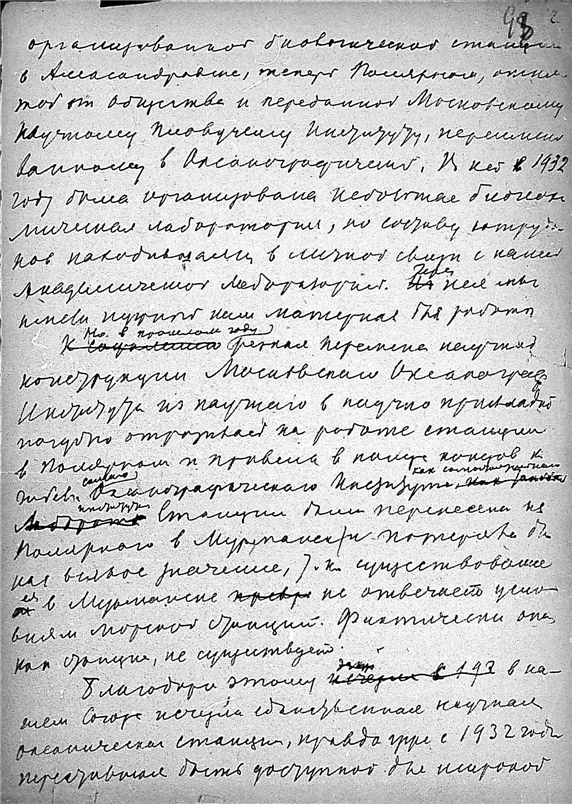 98 2
организованной биологической станции
в Александровске, теперь Полярном, отня-
той от общества и переданной Московскому
Научному Пловучему Институту, переимено
ванному в Океанографический. В ней в 1932
году была организована небольшая биогеохи
мическая лаборатория, по составу сотрудни
ков находившаяся в личной связи с нашей
Академической Лабораторией. Через нея мы
имели нужный нам материал для работы
Но в прошлом году
К сожалению резкая перемена научной
конструкции Московского Океаногра
Института из научного в научно прикладной
пагубно отразилась на работе станции
в Полярном и привела в конце концов к
гибели самого Океанографического Института, как самостоятельного
института
Станция была перенесена из
Полярного в Мурманск и потеряла для
нас всякое значение, т.к. существование
ея в Мурманске не отвечает усло-
виям морской станции. Фактически она,
как станция, не существует.
Благодаря этому 193 в на-
шем Союзе исчезла единственная научная
океаническая станция, правда уже с 1932 года
переставшая быть доступной для широкой